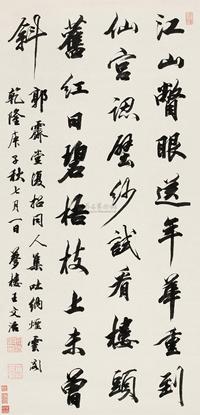 江山瞥眼送年華重到
仙宮認壁紗試看樓頭
舊紅日碧梧枝上未曾
斜
郭霽堂復招同人集吐納煙雲閣
乾隆庚子秋七月一日
夢樓王文治